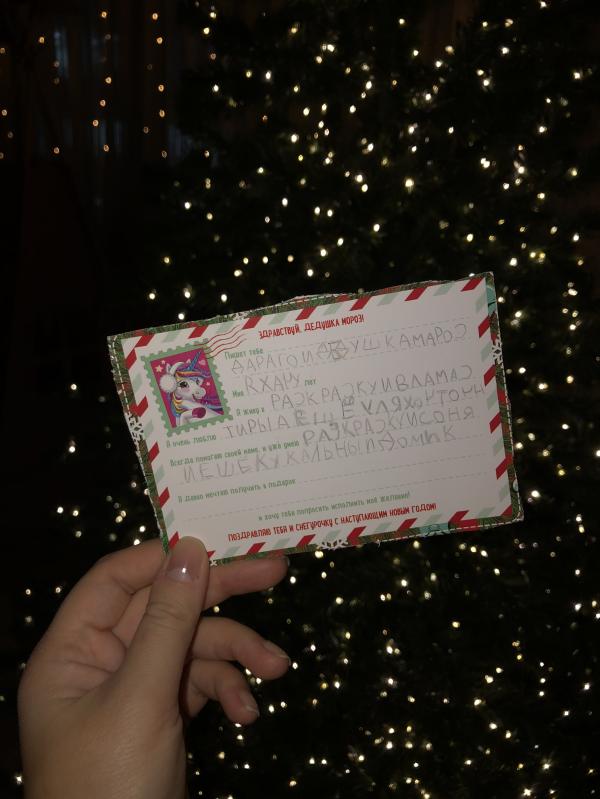 ЗДРАВСТВУЙ, ДЕДУШКА МОРОЗ!
Пишет тебе
ДАРАГОИ ДЕДУШКАМАРОЗ
Мне лет
ЯХАЧУ
Я живу в
РАЗКРАЗКУИВЛАМАЗ
Я очень люблю
ТИРЫ А ЕЩЕ
Всегда помогаю своей маме, и уже умею
РАЗКРАЗКУИСОНЯ
ИЕШЕКУКАЛЬНЫЙ ДОМИК
Я давно мечтаю получить в подарок
и хочу тебя попросить исполнить моё желание!
ПОЗДРАВЛЯЮ ТЕБЯ И СНЕГУРОЧКУ С НАСТУПАЮЩИМ НОВЫМ ГОДОМ!